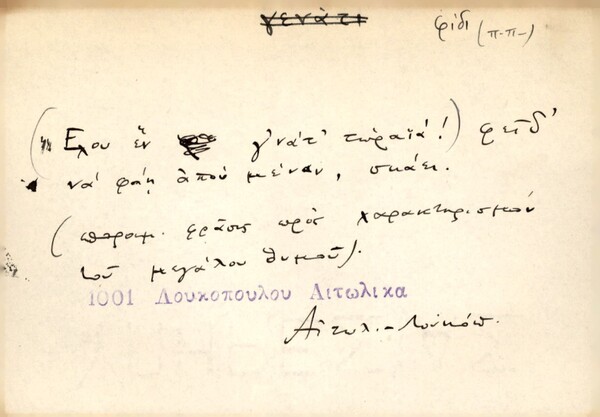 γενάτι
φίδι (π-π-)
("Ἔχου ἕν γ'νάτ' τώραϊά!) φεῖδ'
νά φάῃ ἀπού μέναν, σκάει.
(παροιμ. φράσις πρός χαρακτηρισμόν
τοῦ μεγάλου θυμοῦ).
1001 Λουκοπουλου Αιτωλικα
Αἰτωλ.-Λουκόπ.